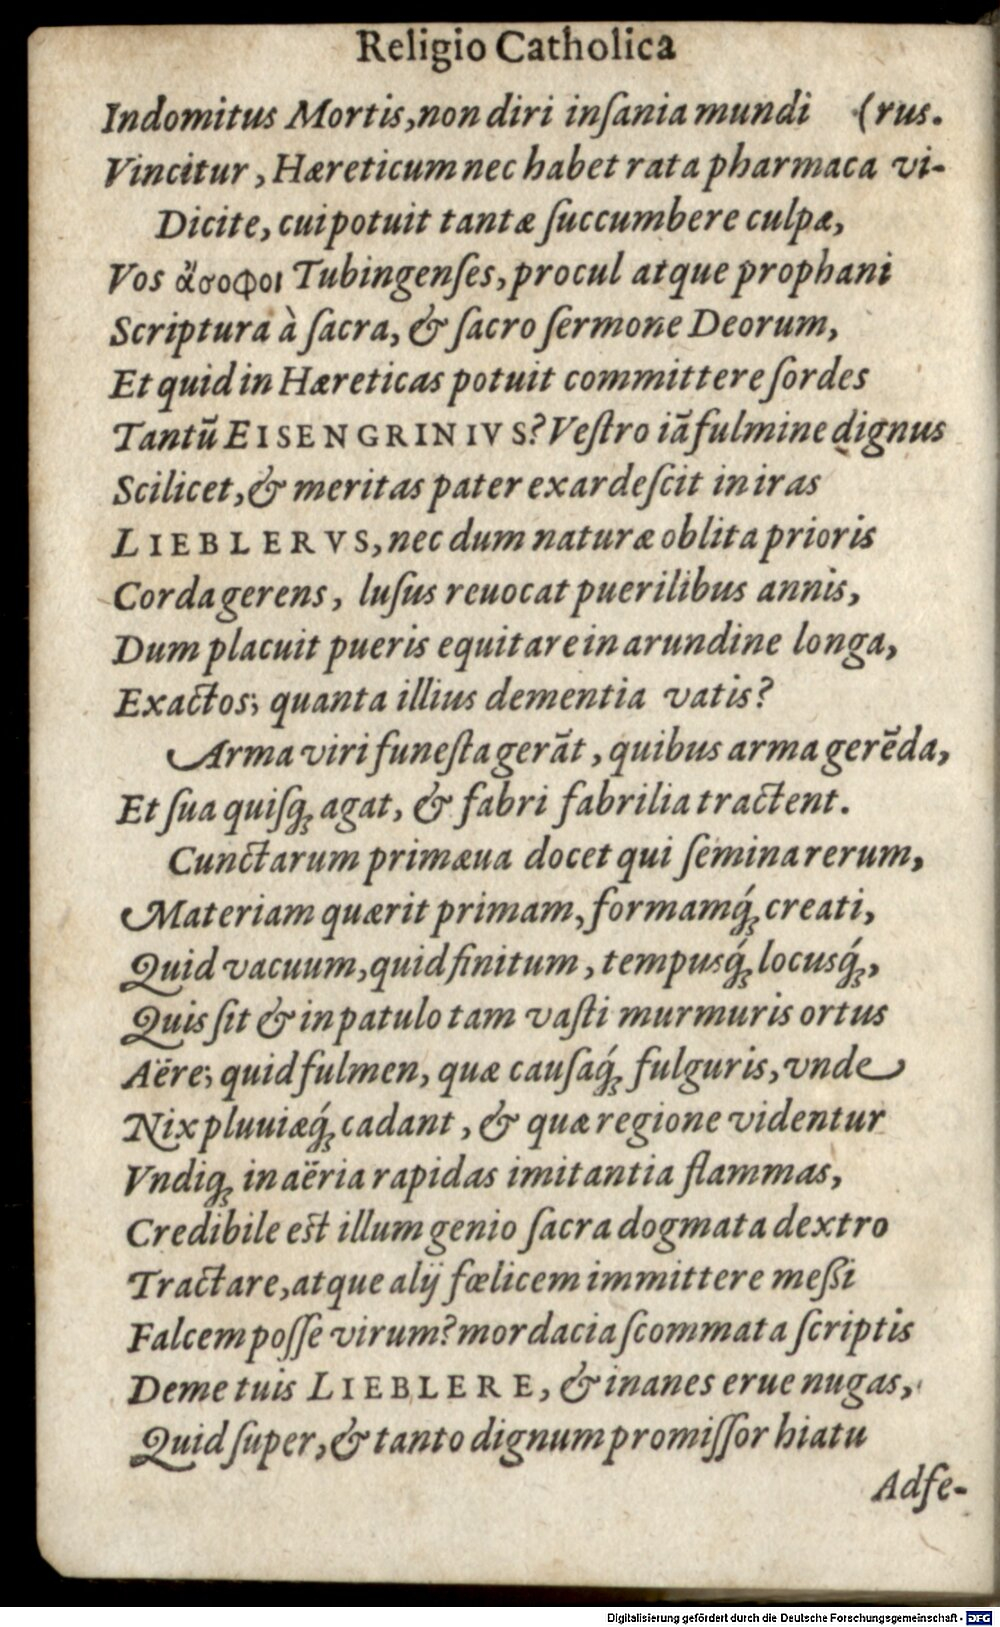 Religio Catholica
Indomitus Mortis, non diri inſania mundi (rus.
Vincitur, Hæreticum nec habet rata pharmaca vi-
Dicite, cui potuit tantæ ſuccumbere culpæ,
Vos ἄσοφοι Tubingenſes, procul atque prophani
Scriptura à ſacra, & ſacro ſermone Deorum,
Et quid in Hæreticas potuit committere ſordes
Tantū EISENGRINIVS? Veſtro iā fulmine dignus
Scilicet, & meritas pater exardeſcit in iras
LIEBLERVS, nec dum naturæ oblita prioris
Corda gerens, luſus reuocat puerilibus annis,
Dum placuit pueris equitare in arundine longa,
Exactos; quanta illius dementia vatis?
Arma viri funeſta gerāt, quibus arma gerēda,
Et ſua quiſq́; agat, & fabri fabrilia tractent.
Cunctarum primæua docet qui ſemina rerum,
Materiam quærit primam, formamq́; creati,
Quid vacuum, quid finitum, tempusq́; locusq́;,
Quis ſit & in patulo tam vaſti murmuris ortus
Aëre; quid fulmen, quæ cauſaq́; fulguris, vnde
Nix pluuiæq́; cadant, & quæ regione videntur
Vndiq; in aëria rapidas imitantia flammas,
Credibile eſt illum genio ſacra dogmata dextro
Tractare, atque alij fœlicem immittere meßi
Falcem poſſe virum? mordacia ſcommata ſcriptis
Deme tuis LIEBLERE, & inanes erue nugas,
Quid ſuper, & tanto dignum promiſſor hiatu
Adfe-
Digitalisierung gefördert durch die Deutsche Forschungsgemeinschaft - DFG